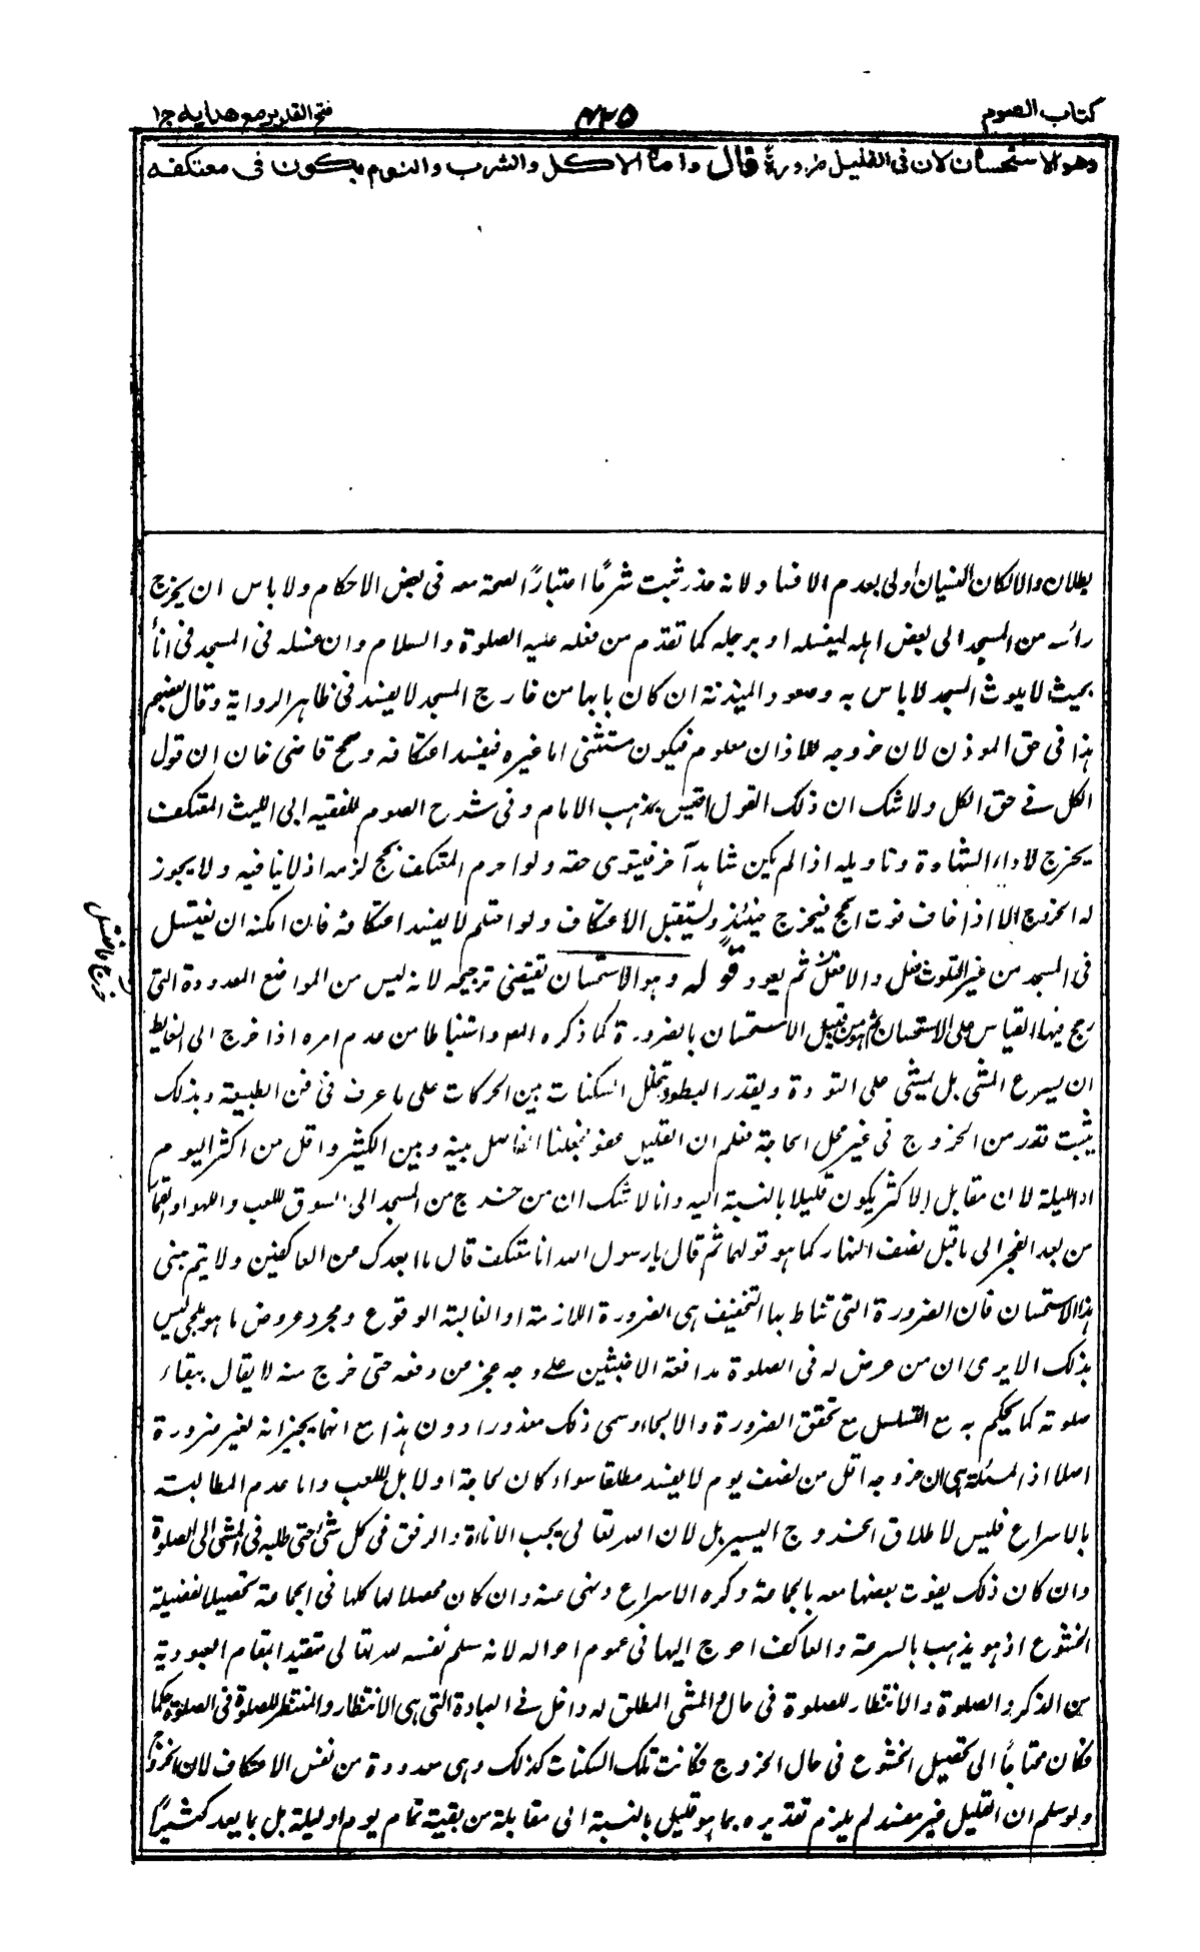 كتاب الصوم
٢٢٥
فتح القدير مع هدايه ج١
وهو الاستحسان لان فى القليل ضرورة قال واما الاكل والشرب والنوم يكون فى معتكفه
بطلان والا لكان النسيان اولى بعدم الافساد لانه عذر ثبت شرعًا اعتبارًا لصحة معه فى بعض الاحكام ولا باس ان يخرج
راسه من المسجد الى بعض اهله ليغسله او يرجله كما تقدم من فعله عليه الصلوة والسلام وان غسله فى المسجد فى اناأ
بحيث لا يلوث المسجد لا باس به وصعود الميذنة ان كان بابها من خارج المسجد لا يفسد فى ظاهر الرواية وقال بعضهم
هذا فى حق الموذن لان خروجه للاذان معلوم فيكون مستثنى اما غيره فيفسد اعتكافه وصحح قاضى خان ان قول
الكل فى حق الكل ولا شك ان ذلك القول اقيس بمذهب الامام وفى شرح الصوم للفقيه ابى الليث المعتكف
يخرج لاداء الشهادة وتاويله اذا لم يكن شاهدآ خر فيتوى حقه ولو احرم المعتكف بحج لزمه اذ لا ينافيه ولا يجوز
له الخروج الا اذا خاف فوت الحج فيخرج حينئذٍ ويستقبل الاعتكاف ولو احتلم لا يفسد اعتكافه فان امكنه ان يغتسل
فى المسجد من غير التلوث فعل والا فاغتسل ثم يعود قوله وهو الاستحسان تقيضى ترجيحه لانه ليس من المواضع المعدودة التى
رجح فيها القياس على الاستحسان ثم هو من قبيل الاستحسان بالضرورة كما ذكره المص واستنباطا من عدم امره اذا خرج الى الغايط
ان يسرع المشى بل يمشى على التودة ويقدر البطو تخلل السكنات بين الحركات على ما عرف فى فن الطبيعة وبذلك
يثبت قدر من الخروج فى غير محل الحاجة فعلم ان القليل عفو فجعلنا الفاصل بينه وبين الكثير واقل من اكثر اليوم
او الليلة لان مقابل الاكثر يكون قليلا بالنسبة اليه وانا لا شك ان من خرج من المسجد الى السوق للعب واللهو او القمار
من بعد الفجر الى ما قبل نصف النهار كما هو قولهما ثم قال يا رسول الله انا معتكف قال ما ابعدك من العاكفين ولا يتم مبنى
هذا الاستحسان فان الضرورة التى تناط بها التخفيف هى الضرورة اللازمة او الغالبة الوقوع ومجرد عروض ما هو ملجئ ليس
بذلك الا يرى ان من عرض له فى الصلوة مدافعة الاخبثين على وجه عجز من دفعه حتى خرج منه لا يقال ببقاء
صلوته كما يحكم به مع السلسل مع تحقق الضرورة والالجاء وسمى ذلك معذورا دون هذا مع انهما يجيزانه لغير ضرورة
اصلا اذ المسئلة هى ان خروجه اقل من نصف يوم لا يفسد مطلقا سواء كان لحاجة اولا بل للعب واما عدم المطالبة
بالاسراع فليس لاطلاق الخروج اليسير بل لان الله تعالى يحب الاناة والرفق فى كل شئ حتى طلبه فى المشى الى الصلوة
وان كان ذلك يفوت بعضها معه بالجماعة وكره الاسراع ونهى عنه وان كان محصلا لها كلها فى الجماعة تحصيلا لفضيلة
الخشوع اذ هو يذهب بالسرعة والعاكف احوج اليها فى عموم احواله لانه سلم نفسه لله تعالى متقيدا بمقام العبودية
من الذكر والصلوة والانتظار للصلوة فى حال المشى المطلق له داخل فى العبادة التى هى الانتظار والمنتظر للصلوة فى الصلوة حكما
فكان محتاجًا الى تحصيل الخشوع فى حال الخروج فكانت تلك السكنات كذلك وهى معدودة من نفس الاعتكاف لا من الخروج
ولو سلم ان القليل غير مفسد لم يلزم تقديره بما هو قليل بالنسبة الى مقابلة من بقية تمام يوم او ليلة بل بما يعد كثيرًا
خرج فاغتسل